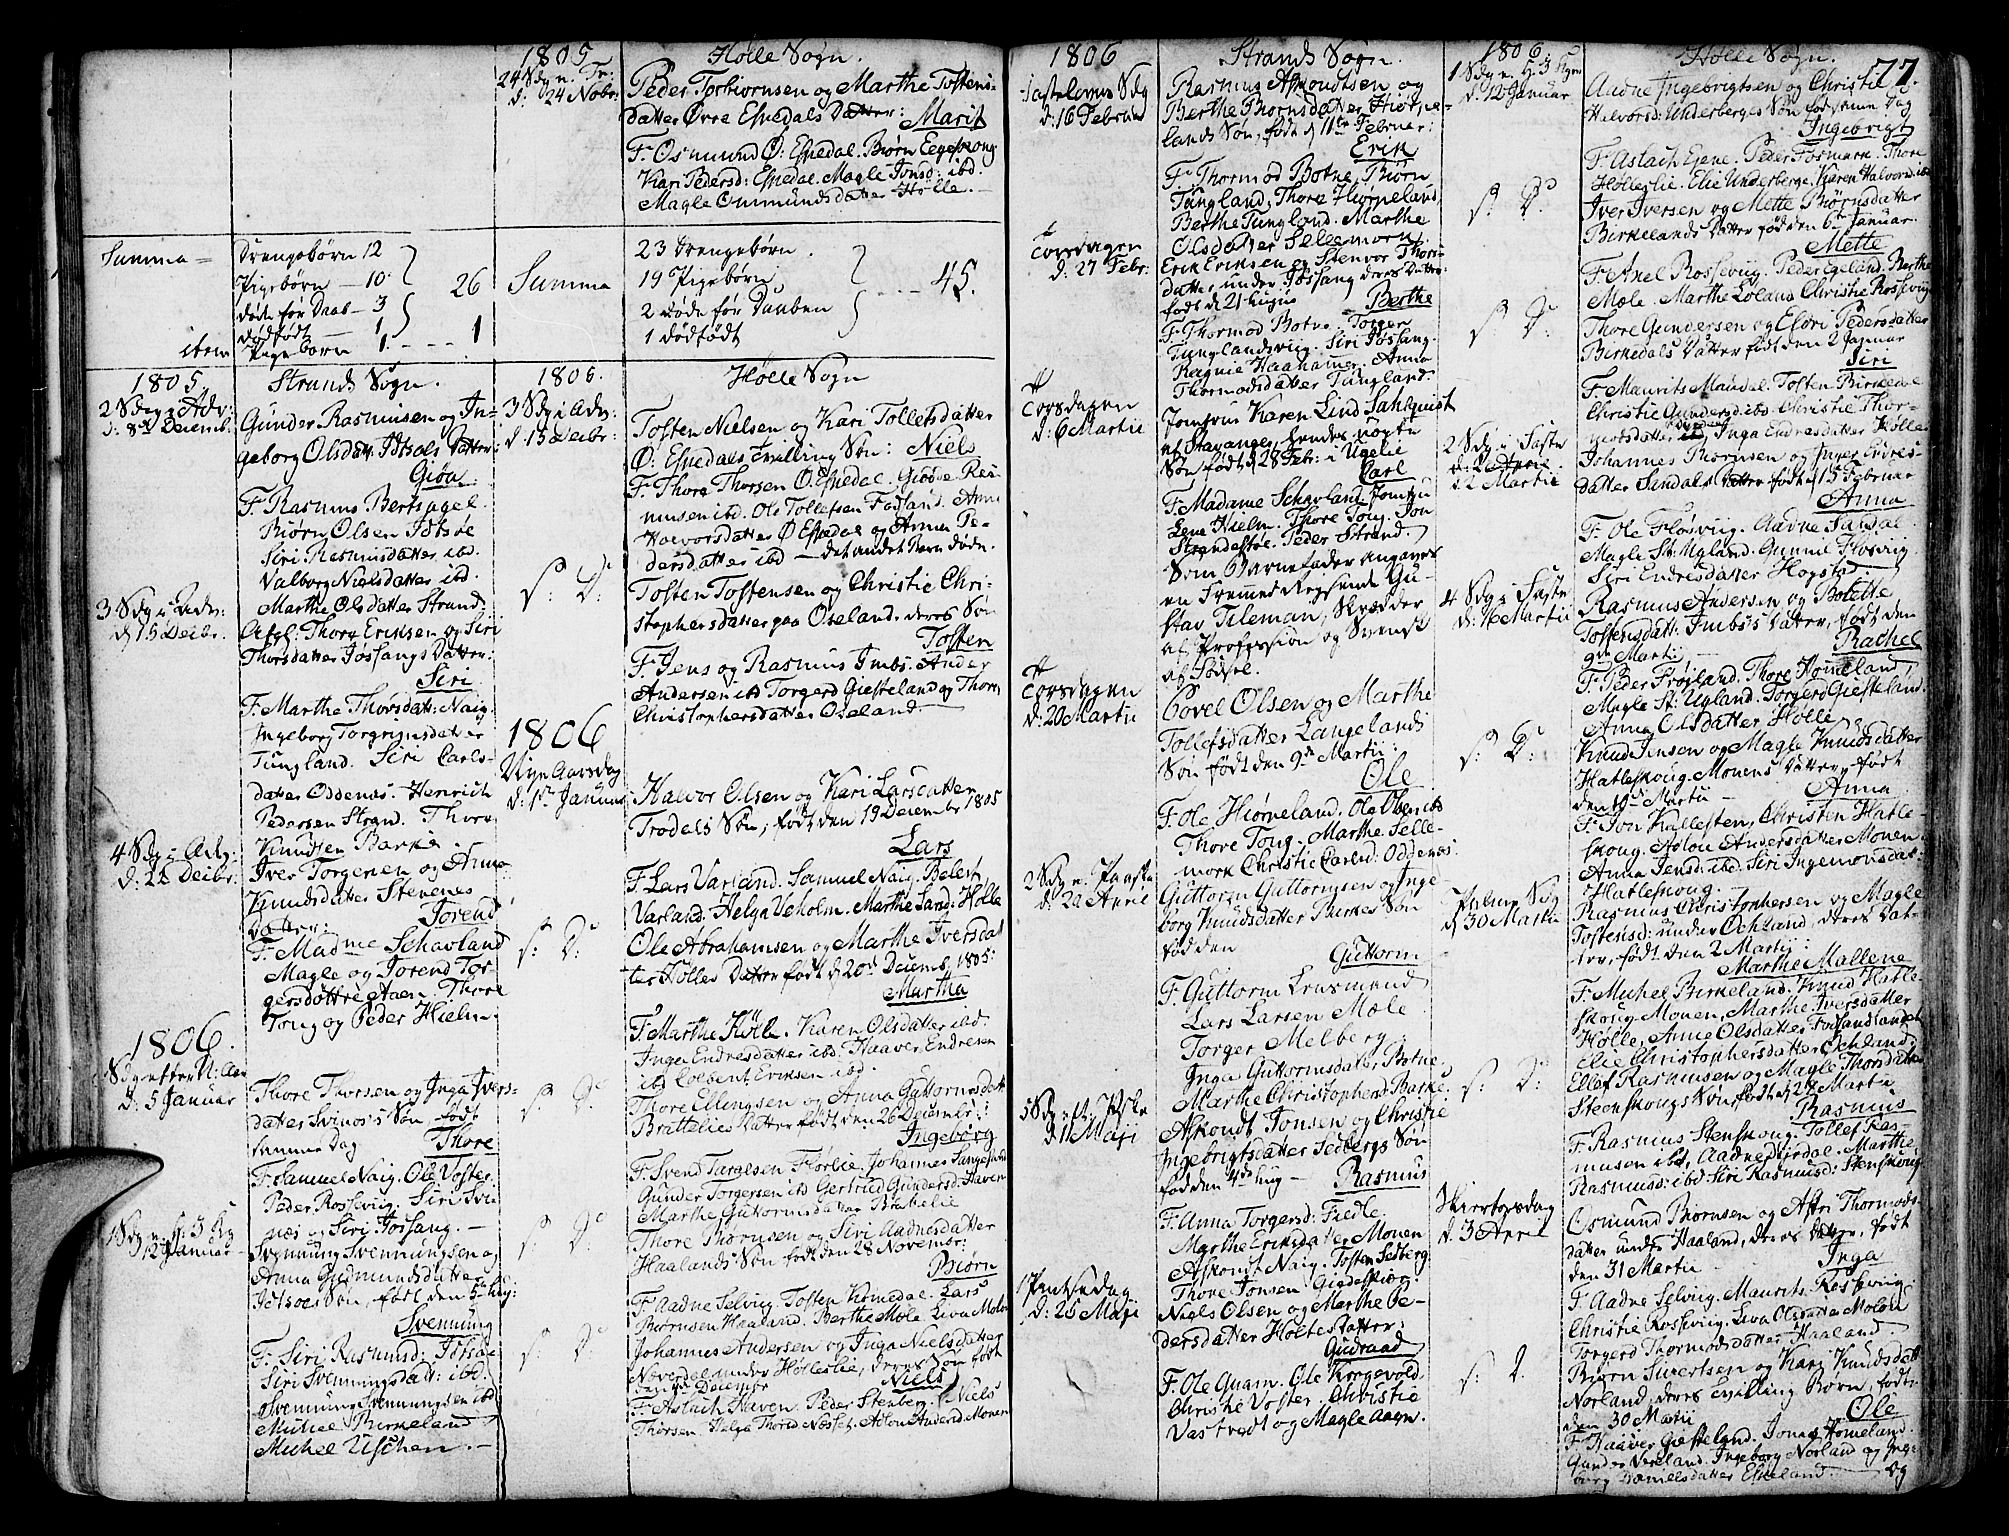 1805
Hølle Sogn.
24 Sdg n. Tr:
d: 24 Nobr:
Peder Torbiornsen og Marthe Tostens-
datter Øvre Espedals Datter: Marit
F. Osmund Ø: Espedal. Biørn
Kari Pedersd: Espedal. Magle Jonsd: ibd.
Magle Ommundsdatter Hølle.
Summa =
Drengebørn 12
Pigebørn — 10
døde før Daab — 3
dødfødt — 1
26
item
Pigebørn 1. - - - 1
Summa
23 Drengebørn
19 Pigebørn
2 Døde før Dauben
1 dødfødt
45.
1805
Strands Sogn.
2 Sdg i Adv:
d: 8de Decemb.
Gunder Rasmusen og In-
geborg Olsdatt: Idtsøes Datter:
Giøa
F. Rasmus Bertsagel.
Biørn Olsen Idtsøe
Siri Rasmusdatter ibd.
Valborg Nielsdatter ibd.
Marthe Olsdatter Strand.
3 Sdg i Adv:
d 15 Decbr.
Afgl: Thore Eriksen og Siri
Thorsdatter Jossangs Datter:
Siri
F. Marthe Thorsdatt: Naig.
Ingeborg Torgrimsdatter
Tungland. Siri Carls-
datter Oddenæs. Henrich
Pedersen Strand. Thore
Knudsen Barke.
4 Sdg i Adv:
d: 22 Decbr.
Iver Torgersen og Anna
Knudsdatter Stevenes
Datter: Torend
F. Madme Schavland
Magle og Torend Tor-
gersdøttre Aaen. Thore
Tong og Peder Hielm.
1806.
Sdg efter N: Aar
d: 5 Januar
Thore Thorsen og Inga Ivers-
datter Svines's Søn født
samme Dag Thore
F. Samuel Naig. Ole Voster.
Peder Rossevig. Siri Svi-
næs og Siri Jossang.
1 Sdg n. H. 3 Kg
12 Januar
Svennung Svennungsen og
Anna Gudmundsdatter
Idtsøes Søn, født den 5te hujus:
Svennung
F. Siri Rasmusd: Idtsøe
Siri Svenningsdatt: ibd.
Svennung Svennungsen ibd
Michel Birkeland
Michel Uschen.
1805.
Hølle Sogn
3 Sdg i Adv:
d: 15 Decbr:
Tosten Nielsen og Kari Tollefsdatter
Ø: Espedals Tvilling Søn: Niels
F. Thore Thorsen Ø. Espedal. Giøde Ras-
musen ibd. Ole Tollefsen Fosland. Anne
Halvorsdatter Ø Espedal og Anna Pe-
dersdatter ibd — det andet Barn døde.
s: D:
Tosten Tostensen og Christie Chri-
stophersdatter paa Oseland. deres Søn
Tosten
F. Jens og Rasmus Imbs. Ander
Andersen ibd Torgerd Giesteland og Thore
Christophersdatter Oseland
1806
Nye Aarsdag
d: 1ste Januar
Halvor Olsen og Kari Larsdatter
Trodals Søn, født den 19 Decembr 1805
Lars
F. Lars Varland. Samuel Naig.
Varland. Helga Veholm. Marthe Sand: Hølle
s: D:
Ole Abrahamsen og Marthe Iversdat
ter Hølles Datter født d 20de Decemb. 1805:
Martha
F. Marthe Hølle. Karen Olsdatter ibd:
Inga Endresdatter ibd. Haaver Endresen
ibd Eriksen ibd.
s: D:
Thore Ellingsen og Anna Guttormsdatt
Brattelies Datter født den 26 Decembr:
Ingeborg
F. Svend Targelsen Florlie. Johannes
Gunder Torgersen ibd Gertrud Gundersd: Haven
Marthe Guttormsdatter Brattelie
s: D:
Thore Thornsen og Siri Aadnesdatter
Haalands Søn født den 28 Novembr:
Biørn
F. Aadne Selvig. Tosten Kommedal. Lars
Biørnsen Haaland. Berthe Mæle. Liva Moløe
s: D:
Johannes Andersen og Inga Nielsdatter
Noverdal under Hølleslie, deres Søn født
Decembr Niels
F. Aslach Haven. Peder Stenberg. Niels
Thorsen. Helga Næsset. Adlou Andersd. Monen
1806
Strands Sogn.
Fastelovns Sdg
d: 16 Februar
Rasmus Asmundtsen og
Berthe Thornsdatter Hiørne-
lands Søn, født d 11te Februar:
Erik
F. Thormod Botne. Biørn
Tungland, Thore Hiørneland
Berthe Tungland. Marthe
Olsdatter Sellemork
Torsdagen
d: 27 Febr:
Erik Eriksen og Stenvor Thors-
datter, under Jossang deres Datter
født d 21 hujus Berthe
F. Thormod Botne. Torger
Tunglandsviig. Siri Jossang.
Ragnie Haahamer. Anna
Thormodsdatter Tungland.
Torsdagen
d: 6 Martii
Jomfrue Karen Lind Sahlquist
af Stavanger, hendes uægte
Søn født d 28 Febr: i Ugelie
Carl
F. Madame Schavland. Jomfru
Lene Hielm. Thore Tong. Jon
Strandestøe. Peder Strand.
Som Barnefader angaves
en fremmed Reisende Gu-
stav Tileman, Skrædder
af Profession og Svensk
af Fødsel.
Torsdagen
d: 20 Martii
Covel Olsen og Marthe
Tollefsdatter Langelands
Søn født den 9de Martii:
Ole
F. Ole Hiørneland. Ole
Thore Tong. Marthe Selle-
mork Christie Carlsd: Oddenæs.
2 Sdg n. Paaske
d: 20 April
Guttorm Guttormsen og Inge-
borg Knudsdatter Barkes Søn
fød den Guttorm
F. Guttorm Lensmand
Lars Larsen Mæle
Torger Melberg.
Inga Guttormsdatt. Botne.
Marthe Christophersd: Barke.
5 Sdg n. Paaske
d 11 Maji
Askondt Jonsen og Christie
Ingebrigtsdatter Sedbergs Søn
fød den 4de hujus — Rasmus
F. Anna Torgersd: Fiedle.
Marthe Eriksdatter Monen
Askondt Naig. Tosten Sedberg
Thore Jonsen
1 Pintsedag
d: 25 Maji
Niels Olsen og Marthe Pe-
dersdatter Holtes Datter:
Gudraad
F. Ole Quam. Ole Krogevold.
Christie Voster. Christie
Vastvedt og Magle Aagn.
1806.
Hølle Sogn.
77.
1 Sdg n. H. 3 Kgn
d. 12 Januar
Aadne Ingebrigtsen og Christie
Halvorsd: Underberges Søn fød samme Dag
Ingebrigt
F. Aslach Eiene. Peder Fosmark. Thore
Hølleslie. Elie Underberge. Karen Halvorsd ibd
s: D:
Iver Iversen og Mette Biørnsdatter
Birkelands Datter fød den 6te Januar.
Mette
F. Axel Rossevig. Peder Egeland. Berthe
Mæle. Marthe Eoland Christie Rossevig
s: D:
Thore Gundersen og Eldri Pedersdatter
Birkedals Datter født den 2 Januar
Siri
F. Maurits Maudal. Tosten Birkedal
Christie Gundersd: ibd. Christie Thor-
modsdatter og Inga Endresdatter Hølle
2 Sdg i Faste
d. 2 Martii
Johannes Thornsen og Inger Endres-
datter Sandals Datter født d 15 Februar
Anna
F. Ole Flosvig. Aadne Sandal.
Magle St: Ugland. Gunnil Flosvig
Siri Endresdatter Hogstad.
4 Sdg i Faste
d: 16 Martii
Rasmus Andersen og Bolette
Tostensdatt: Imbs's Datter, født den
9de Martii Rachel
F. Peder Frøiland. Thore Hommeland
Magle St: Ugland. Torgerd Giesteland.
Anna Olsdatter Hølle
s: D:
Knud Jensen og Magle Knudsdatter
Hatleskoug. Monens Datter født
den 9de Martii Anna
F. Jon Kallesten, Christen Hatle-
skoug. Adlou Andersdatter Monen.
Anna Jensd: ibd. Siri Ingemonsdat:
Hatleskoug.
Palme Sdg
d 30 Martii
Rasmus Christophersen og Magle
Tostensd: under Ochland, deres Dat-
ter født den 2 Martii:
Marthe Mallene
F. Michel Birkeland. Knud Hatle-
skoug. Monen, Marthe Iversdatter
Hølle, Anne Olsdatter Fossandlandet
Elie Christophersdatter Ochland.
s: D:
Ellef Rasmusen og Magle Thorsdatter
Steenskougs Søn, født d 28 Martii
Rasmus
F. Rasmus Stenskoug. Tollef Ras-
musen ibd. Aadne. Marthe
Rasmusd: ibd Siri Rasmusd: Stenskoug
Skiertorsdag
d. 3 April
Osmund Biørnsen og Astri Thormods-
datter under Haaland, deres Datter, født
den 31 Martii Inga
F. Aadne Selvig. Maurits Rossevig.
Christie Rossevig. Liva Olsdatter Moløe
Torgerd Thormodsdatter Haaland.
s: D.
Biørn Sivertsen og Kari Knudsdatt
Norland, deres Tvilling Børn, fødte
den 30 Martii Ole
F. Haaver Giesteland. Jonas Homeland.
Gunder Vereland. Ingeborg Norland og Inge-
borg Danielsdatter Eskeland.
og